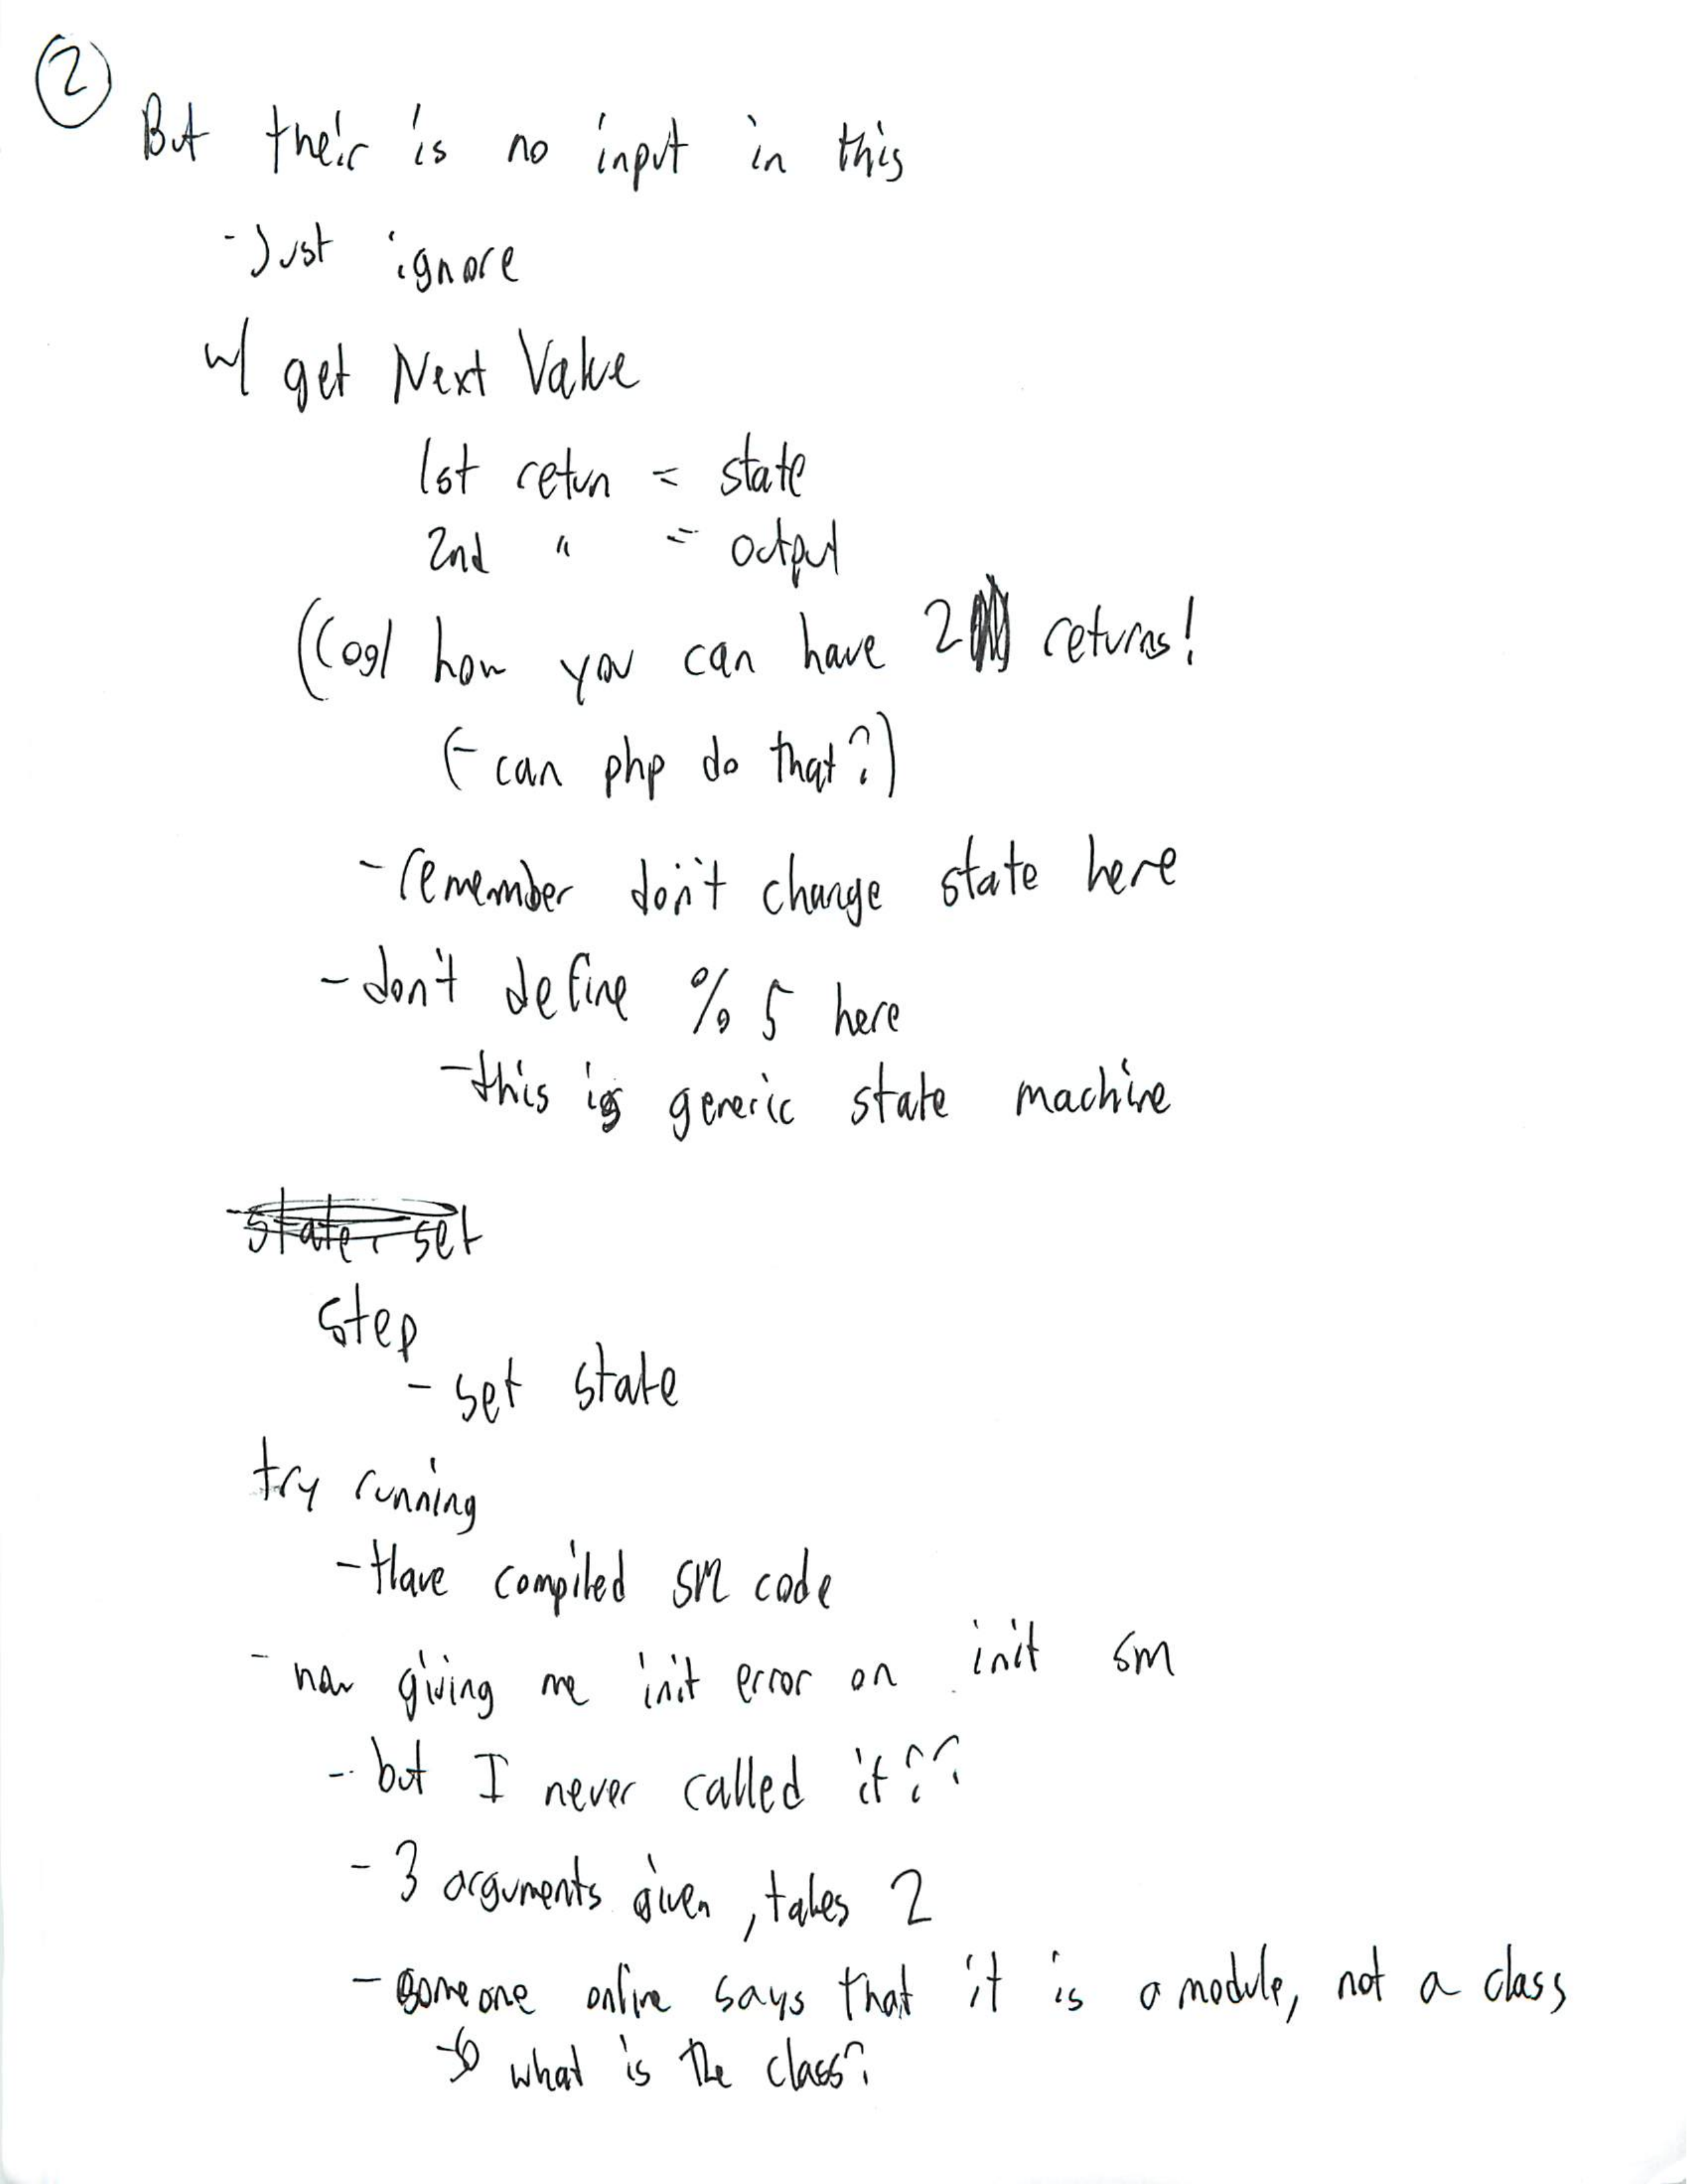 2
But their is no input in this
-Just ignore
w/ get Next Value
1st retun = state
2nd " = output
(Cool how you can have 2 returns!
(- can php do that?)
- remember don't change state here
- don't define % 5 here
- this is generic state machine
- state. set
step
- set state
try running
- Have compiled SM code
- now giving me init error on init sm
- but I never called it??
- 3 arguments given, takes 2
- someone online says that it is a module, not a class
- so what is the class?